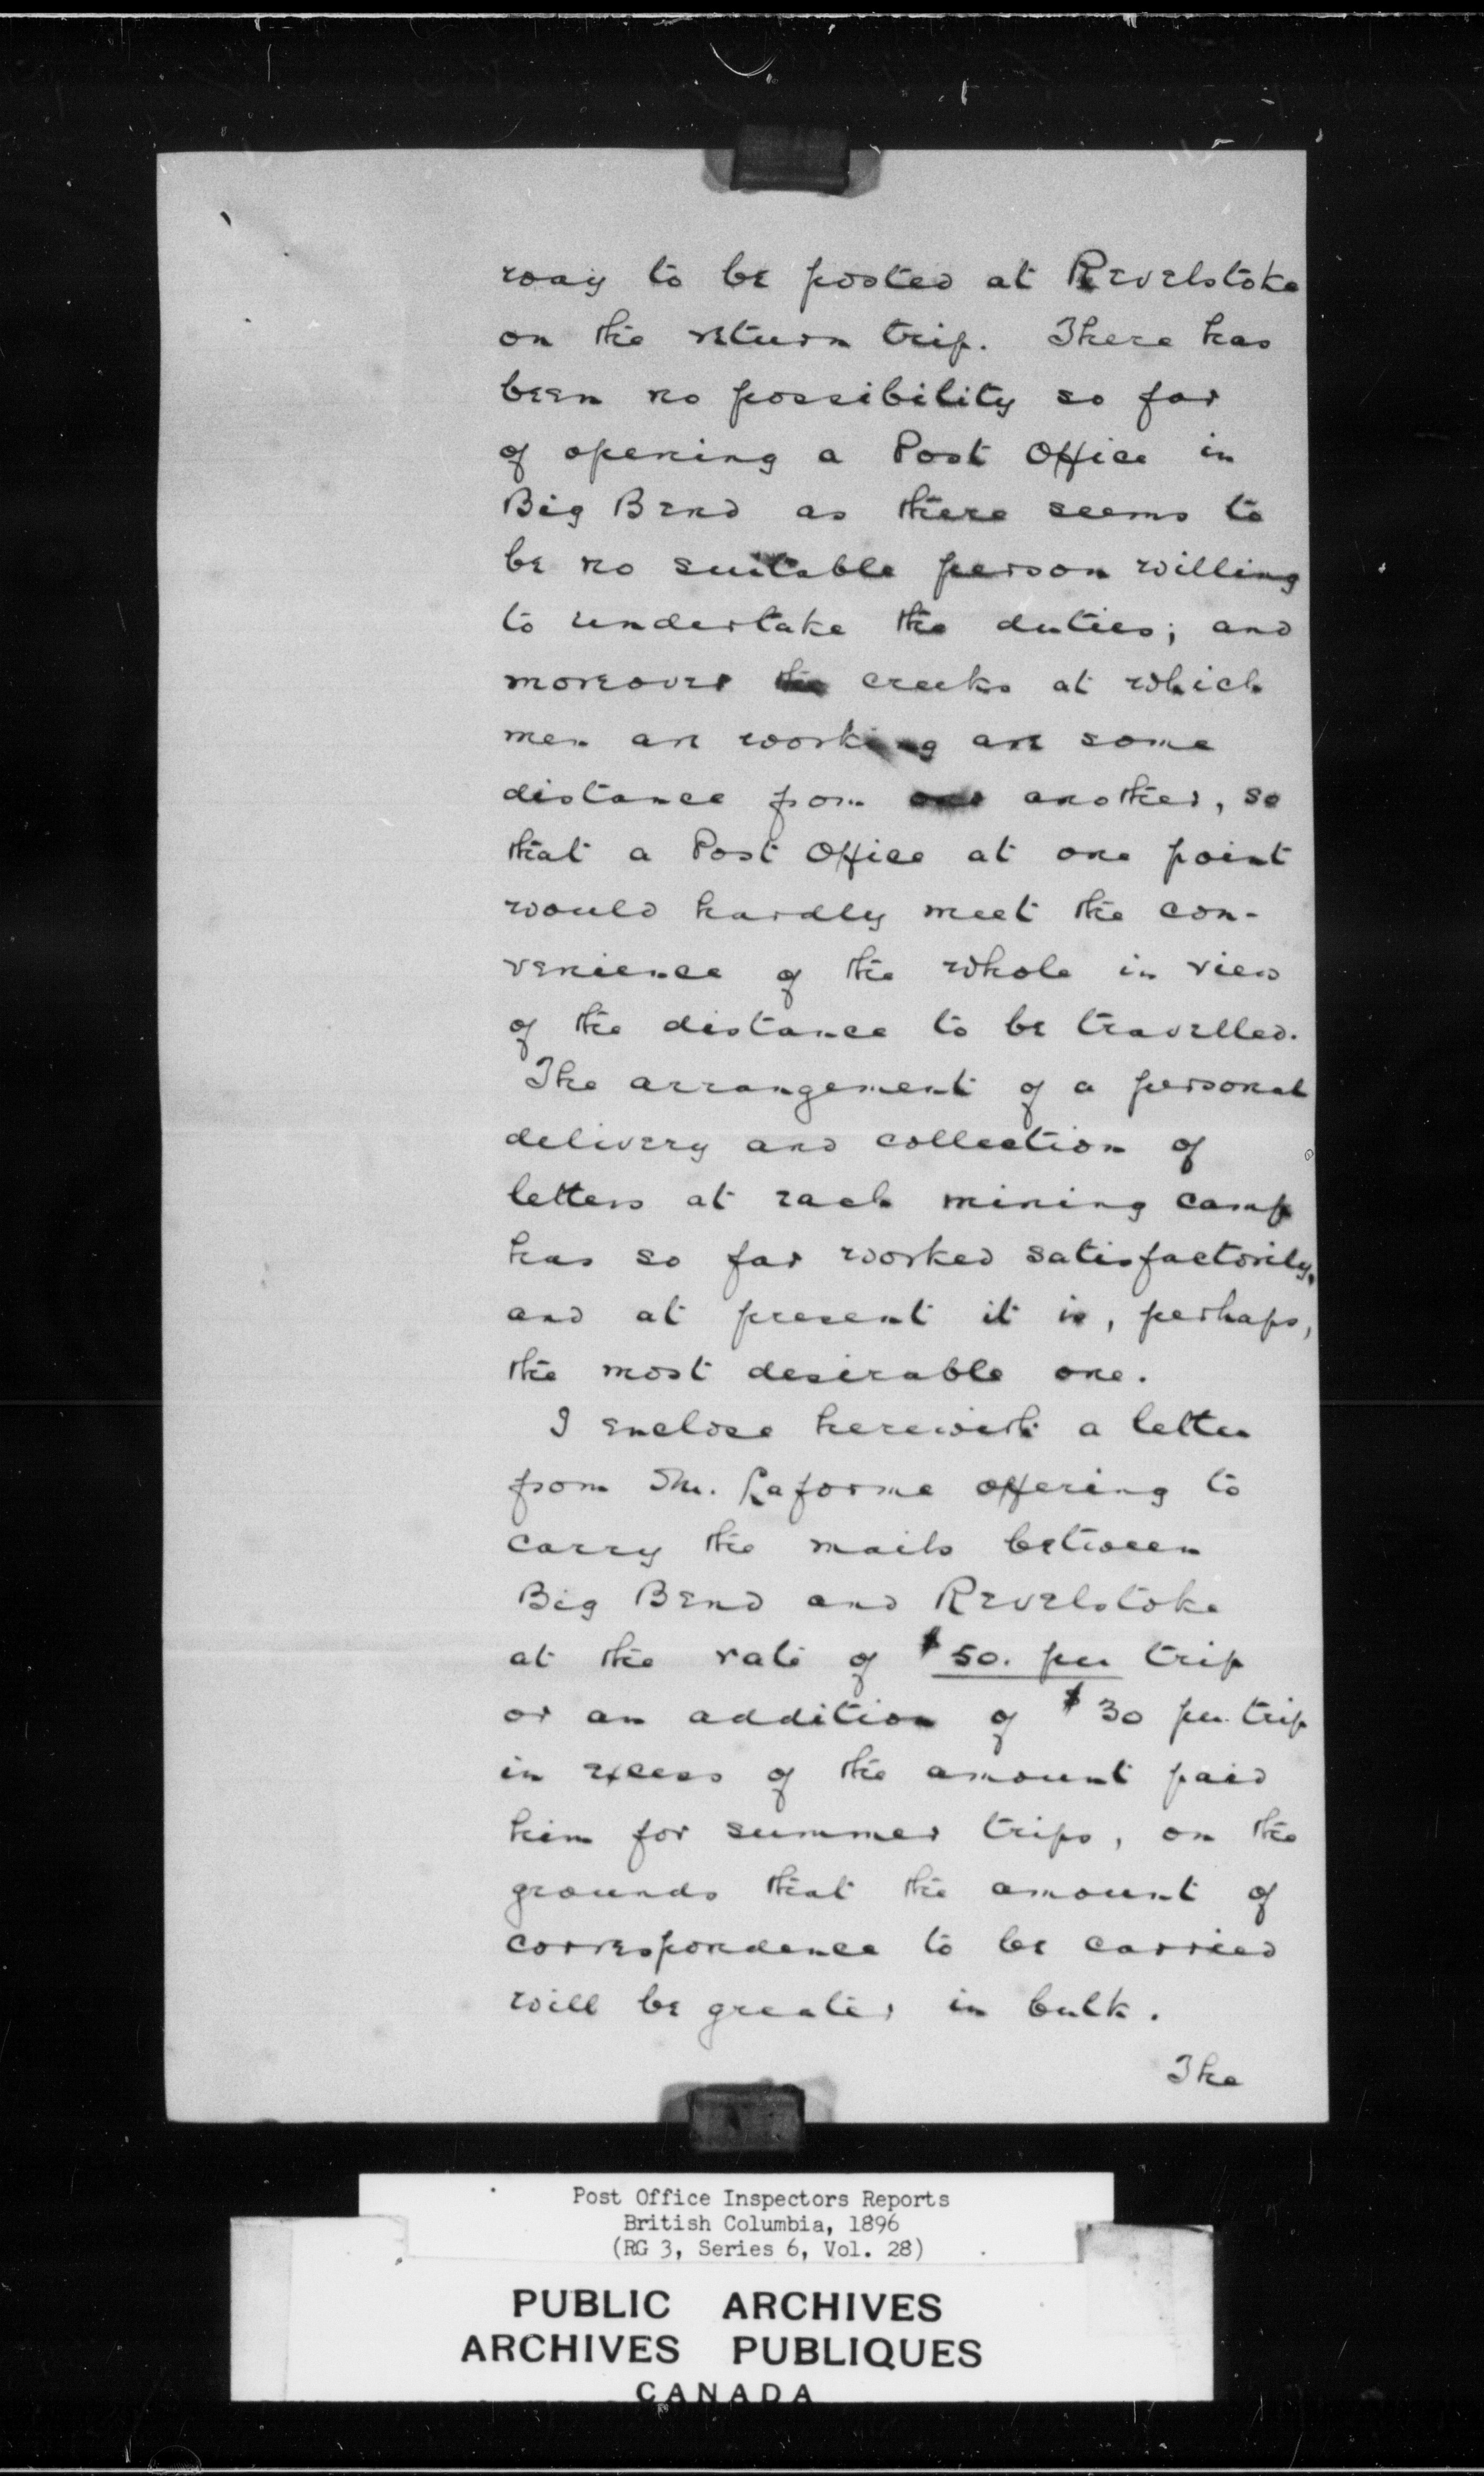 way to be posted at Revelstoke
on the return trip. There has
been no possibility so far
of opening a Post Office in
Big Bend as there seems to
be no suitable person willing
to undertake the duties; and
moreover the creeks at which
men are working are some
distance from one another, so
that a Post Office at one point
would hardly meet the con-
venience of the whole in view
of the distance to be travelled.
The arrangement of a personal
delivery and collection of
letters at each mining camp
has so far worked satisfactorily,
and at present it is, perhaps,
the most desirable one.
I enclose herewith a letter
from Mr. Laforme offering to
carry the mails between
Big Bend and Revelstoke
at the rate of $50. per trip
or an addition of $30 per trip
in excess of the amount paid
him for summer trips, on the
grounds that the amount of
correspondence to be carried
will be greater in bulk.
The
Post Office Inspectors Reports
British Columbia, 1896
(RG 3, Series 6, Vol. 28)
PUBLIC ARCHIVES
ARCHIVES PUBLIQUES
CANADA